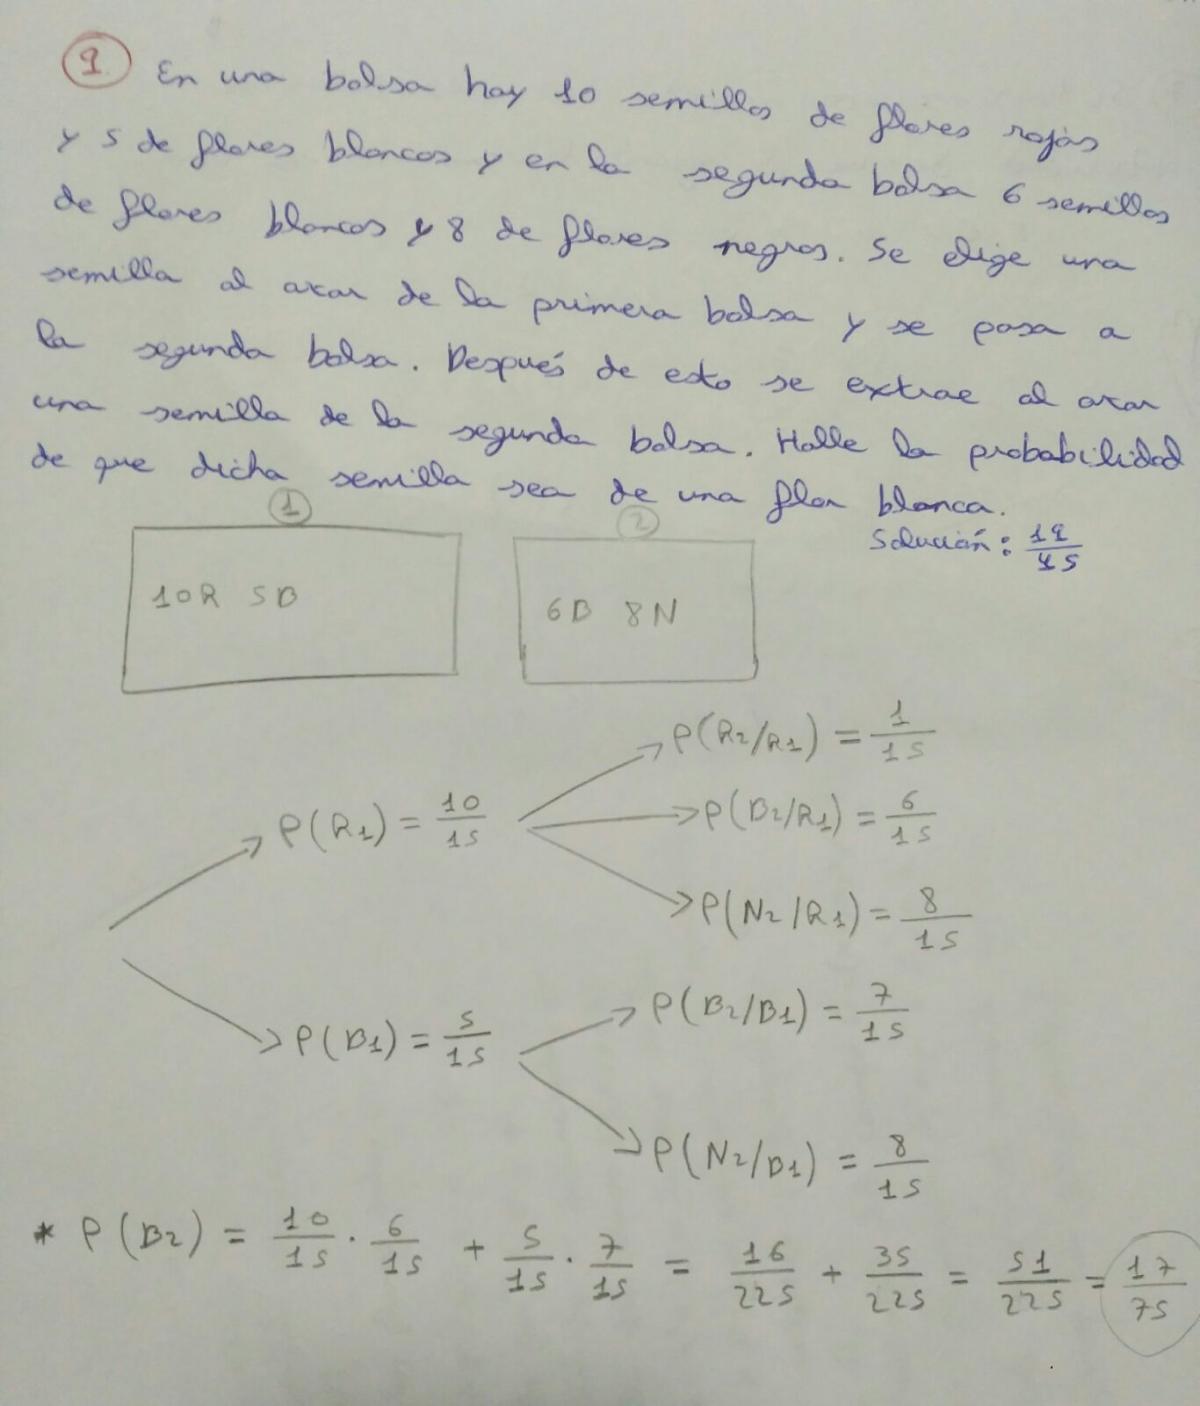 1
En una bolsa hay 10 semillas de flores rojas
y 5 de flores blancas y en la segunda bolsa 6 semillas
de flores blancas y 8 de flores negras. Se elige una
semilla al azar de la primera bolsa y se pasa a
la segunda bolsa. Después de esto se extrae al azar
una semilla de la segunda bolsa. Halle la probabilidad
de que dicha semilla sea de una flor blanca.
Solución: 19/45
1
2
10R 5B
6B 8N
P(R1) = 10/15
P(R2/R1) = 1/15
P(B2/R1) = 6/15
P(N2/R1) = 8/15
P(B1) = 5/15
P(B2/B1) = 7/15
P(N2/B1) = 8/15
* P(B2) = 10/15 · 6/15 + 5/15 · 7/15 = 16/225 + 35/225 = 51/225 = 17/75